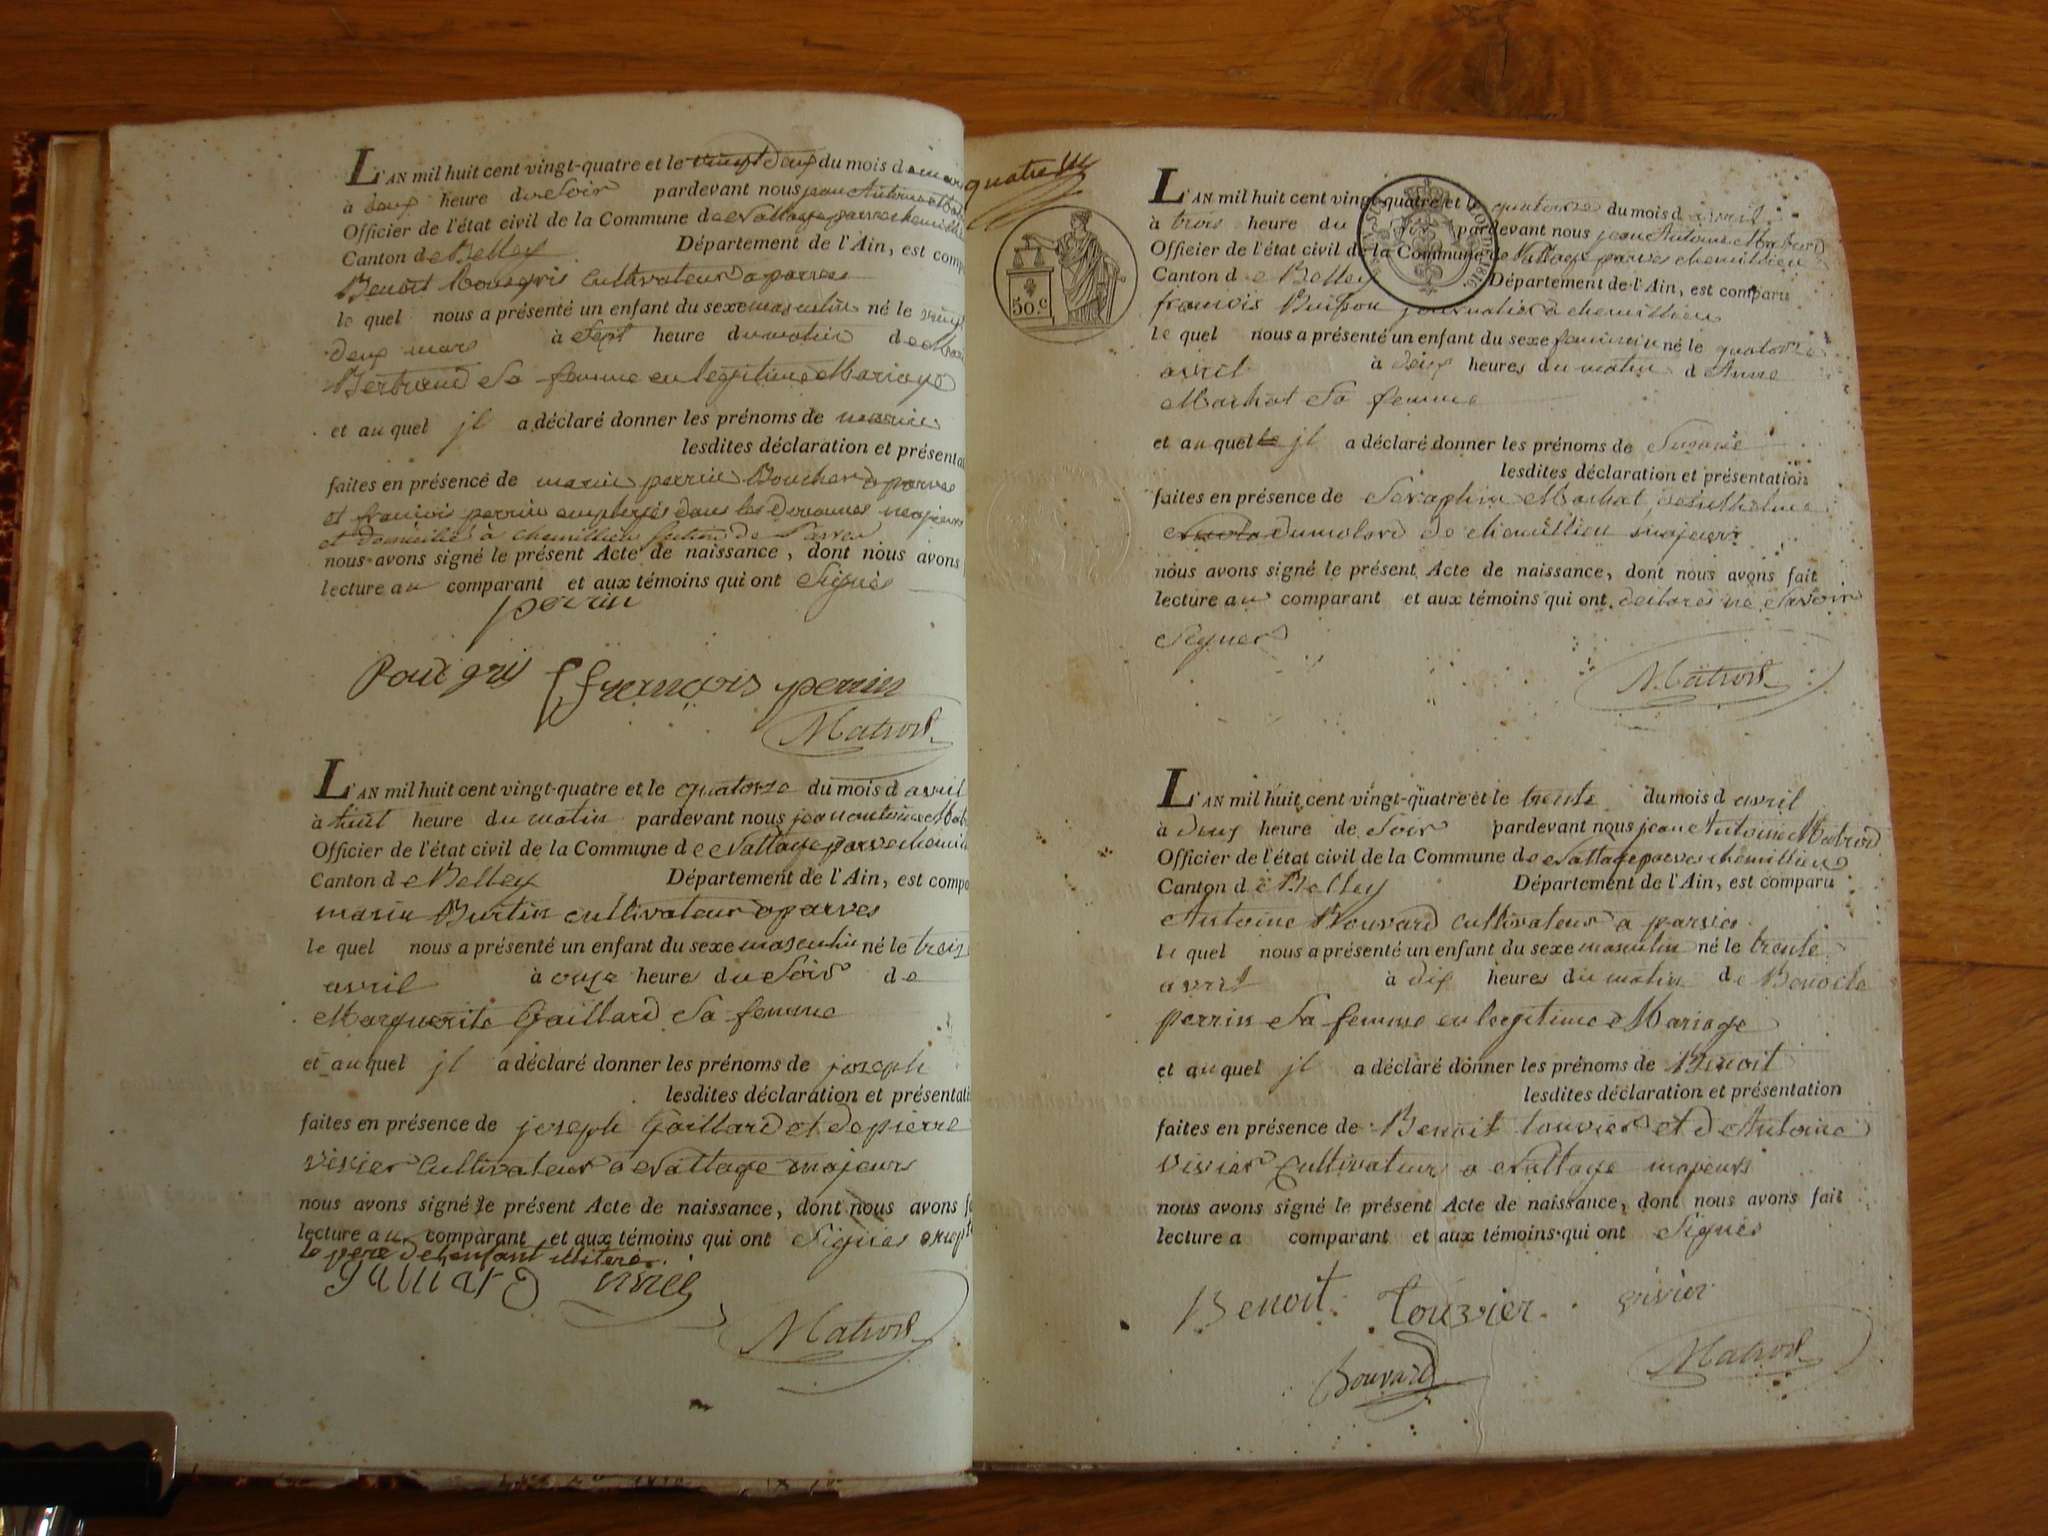 L'AN mil huit cent vingt-quatre et le vingt deux du mois d
à deux heure du Soir pardevant nous jean Antoine
Officier de l'état civil de la Commune de Nattage parves chemillieu
Canton de Belley Département de l'Ain, est comp
Benoit cultivateur a parves
le quel nous a présenté un enfant du sexe masculin né le vingt
deux mars à Sept heure du matin de
Bertrand Sa femme en legitime Mariage
et au quel jl a déclaré donner les prénoms de marin
lesdites déclaration et présentat
faites en présence de marin perrin Boucher a parves
et francois perrin employés dans les Douannes majeurs
et domicilié à chemillieu de Parves
nous avons signé le présent Acte de naissance, dont nous avons
lecture au comparant et aux témoins qui ont Signés
perrin
Pouxgris ffrançois perrin
Matrod
L'AN mil huit cent vingt-quatre et le quatorze du mois d avril
à huit heure du matin pardevant nous jean antoine Mat
Officier de l'état civil de la Commune de Nattage parves chemill
Canton de Belley Département de l'Ain, est compa
marin Burtin cultivateur a parves
le quel nous a présenté un enfant du sexe masculin né le treize
avril à onze heures du Soir de
Marguerite Gaillard Sa femme
et au quel jl a déclaré donner les prénoms de joseph
lesdites déclaration et présentati
faites en présence de joseph Gaillard et de pierre
vivier Cultivateur a Nattage majeurs
nous avons signé le présent Acte de naissance, dont nous avons f
lecture au comparant et aux témoins qui ont Signés except
le pere de l'enfant illiteré.
Galliard vivié
Matrod
quatre
50.c
L'AN mil huit cent vingt-quatre et le quatorze du mois d avril
à trois heure du Soir pardevant nous jean Antoine Matrod
Officier de l'état civil de la Commune de Nattage parves chemillieu
Canton de Belley Département de l'Ain, est comparu
francois Buisson journalier a chemillieu
le quel nous a présenté un enfant du sexe feminin né le quatorze
avril à deux heures du matin d Anne
Machat Sa femme
et au quel le jl a déclaré donner les prénoms de Suzanne
lesdites déclaration et présentation
faites en présence de Seraphin Machat, et Anthelme
dumolard de chemillieu majeurs
nous avons signé le présent Acte de naissance, dont nous avons fait
lecture au comparant et aux témoins qui ont declarés ne Savoir
Signer
Matrod
L'AN mil huit cent vingt-quatre et le trente du mois d avril
à deux heure de Soir pardevant nous jean Antoine Matrod
Officier de l'état civil de la Commune de Nattage parves chemillieu
Canton de Belley Département de l'Ain, est comparu
Antoine Bouvard cultivateur a parves
le quel nous a présenté un enfant du sexe masculin né le trente
avril à dix heures du matin de Benoite
perrin Sa femme en legitime Mariage
et au quel jl a déclaré donner les prénoms de Benoit
lesdites déclaration et présentation
faites en présence de Benoit touvier et d Antoine
vivier Cultivateur a Nattage majeurs
nous avons signé le présent Acte de naissance, dont nous avons fait
lecture a comparant et aux témoins qui ont Signés
Benoit Touvier vivier
Bouvard Matrod